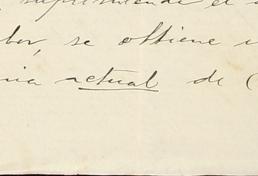 suprimiende el
bor, se obtiene
nia actual de